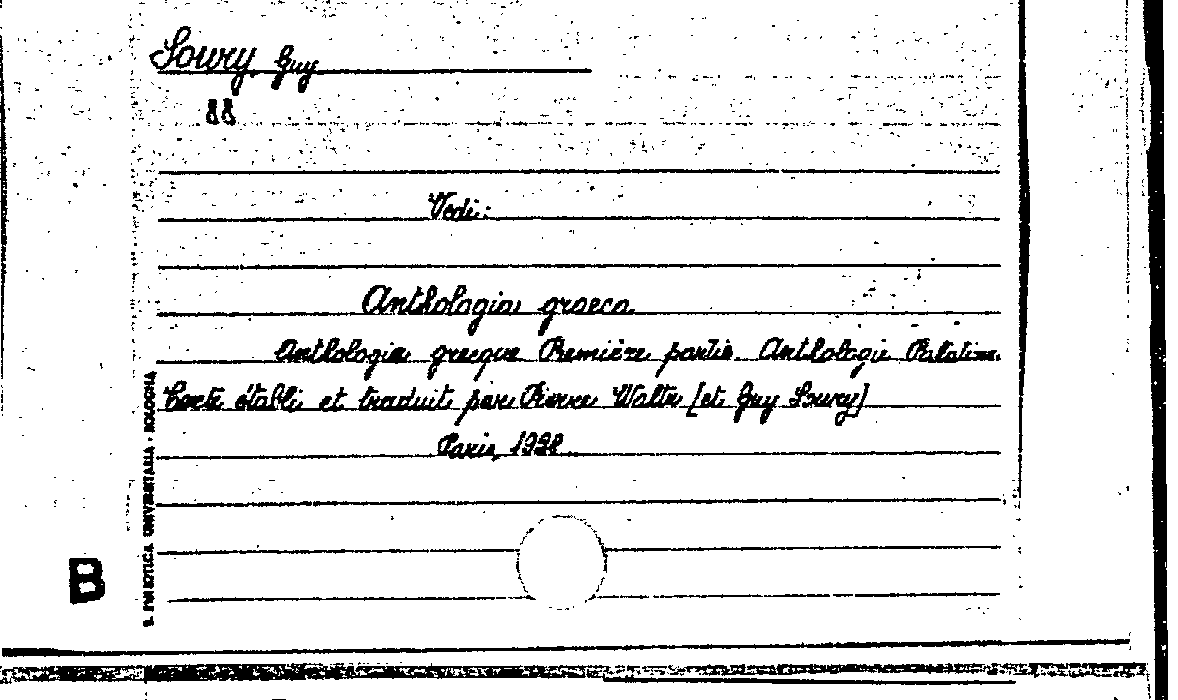 Soury, Guy
Vedi:
Anthologia graeca.
Anthologie grecque Première partie. Anthologie Palatine.
Texte établi et traduit par Pierre Waltz [et Guy Soury]
Paris, 1928
B
BIBLIOTECA UNIVERSITARIA - BOLOGNA